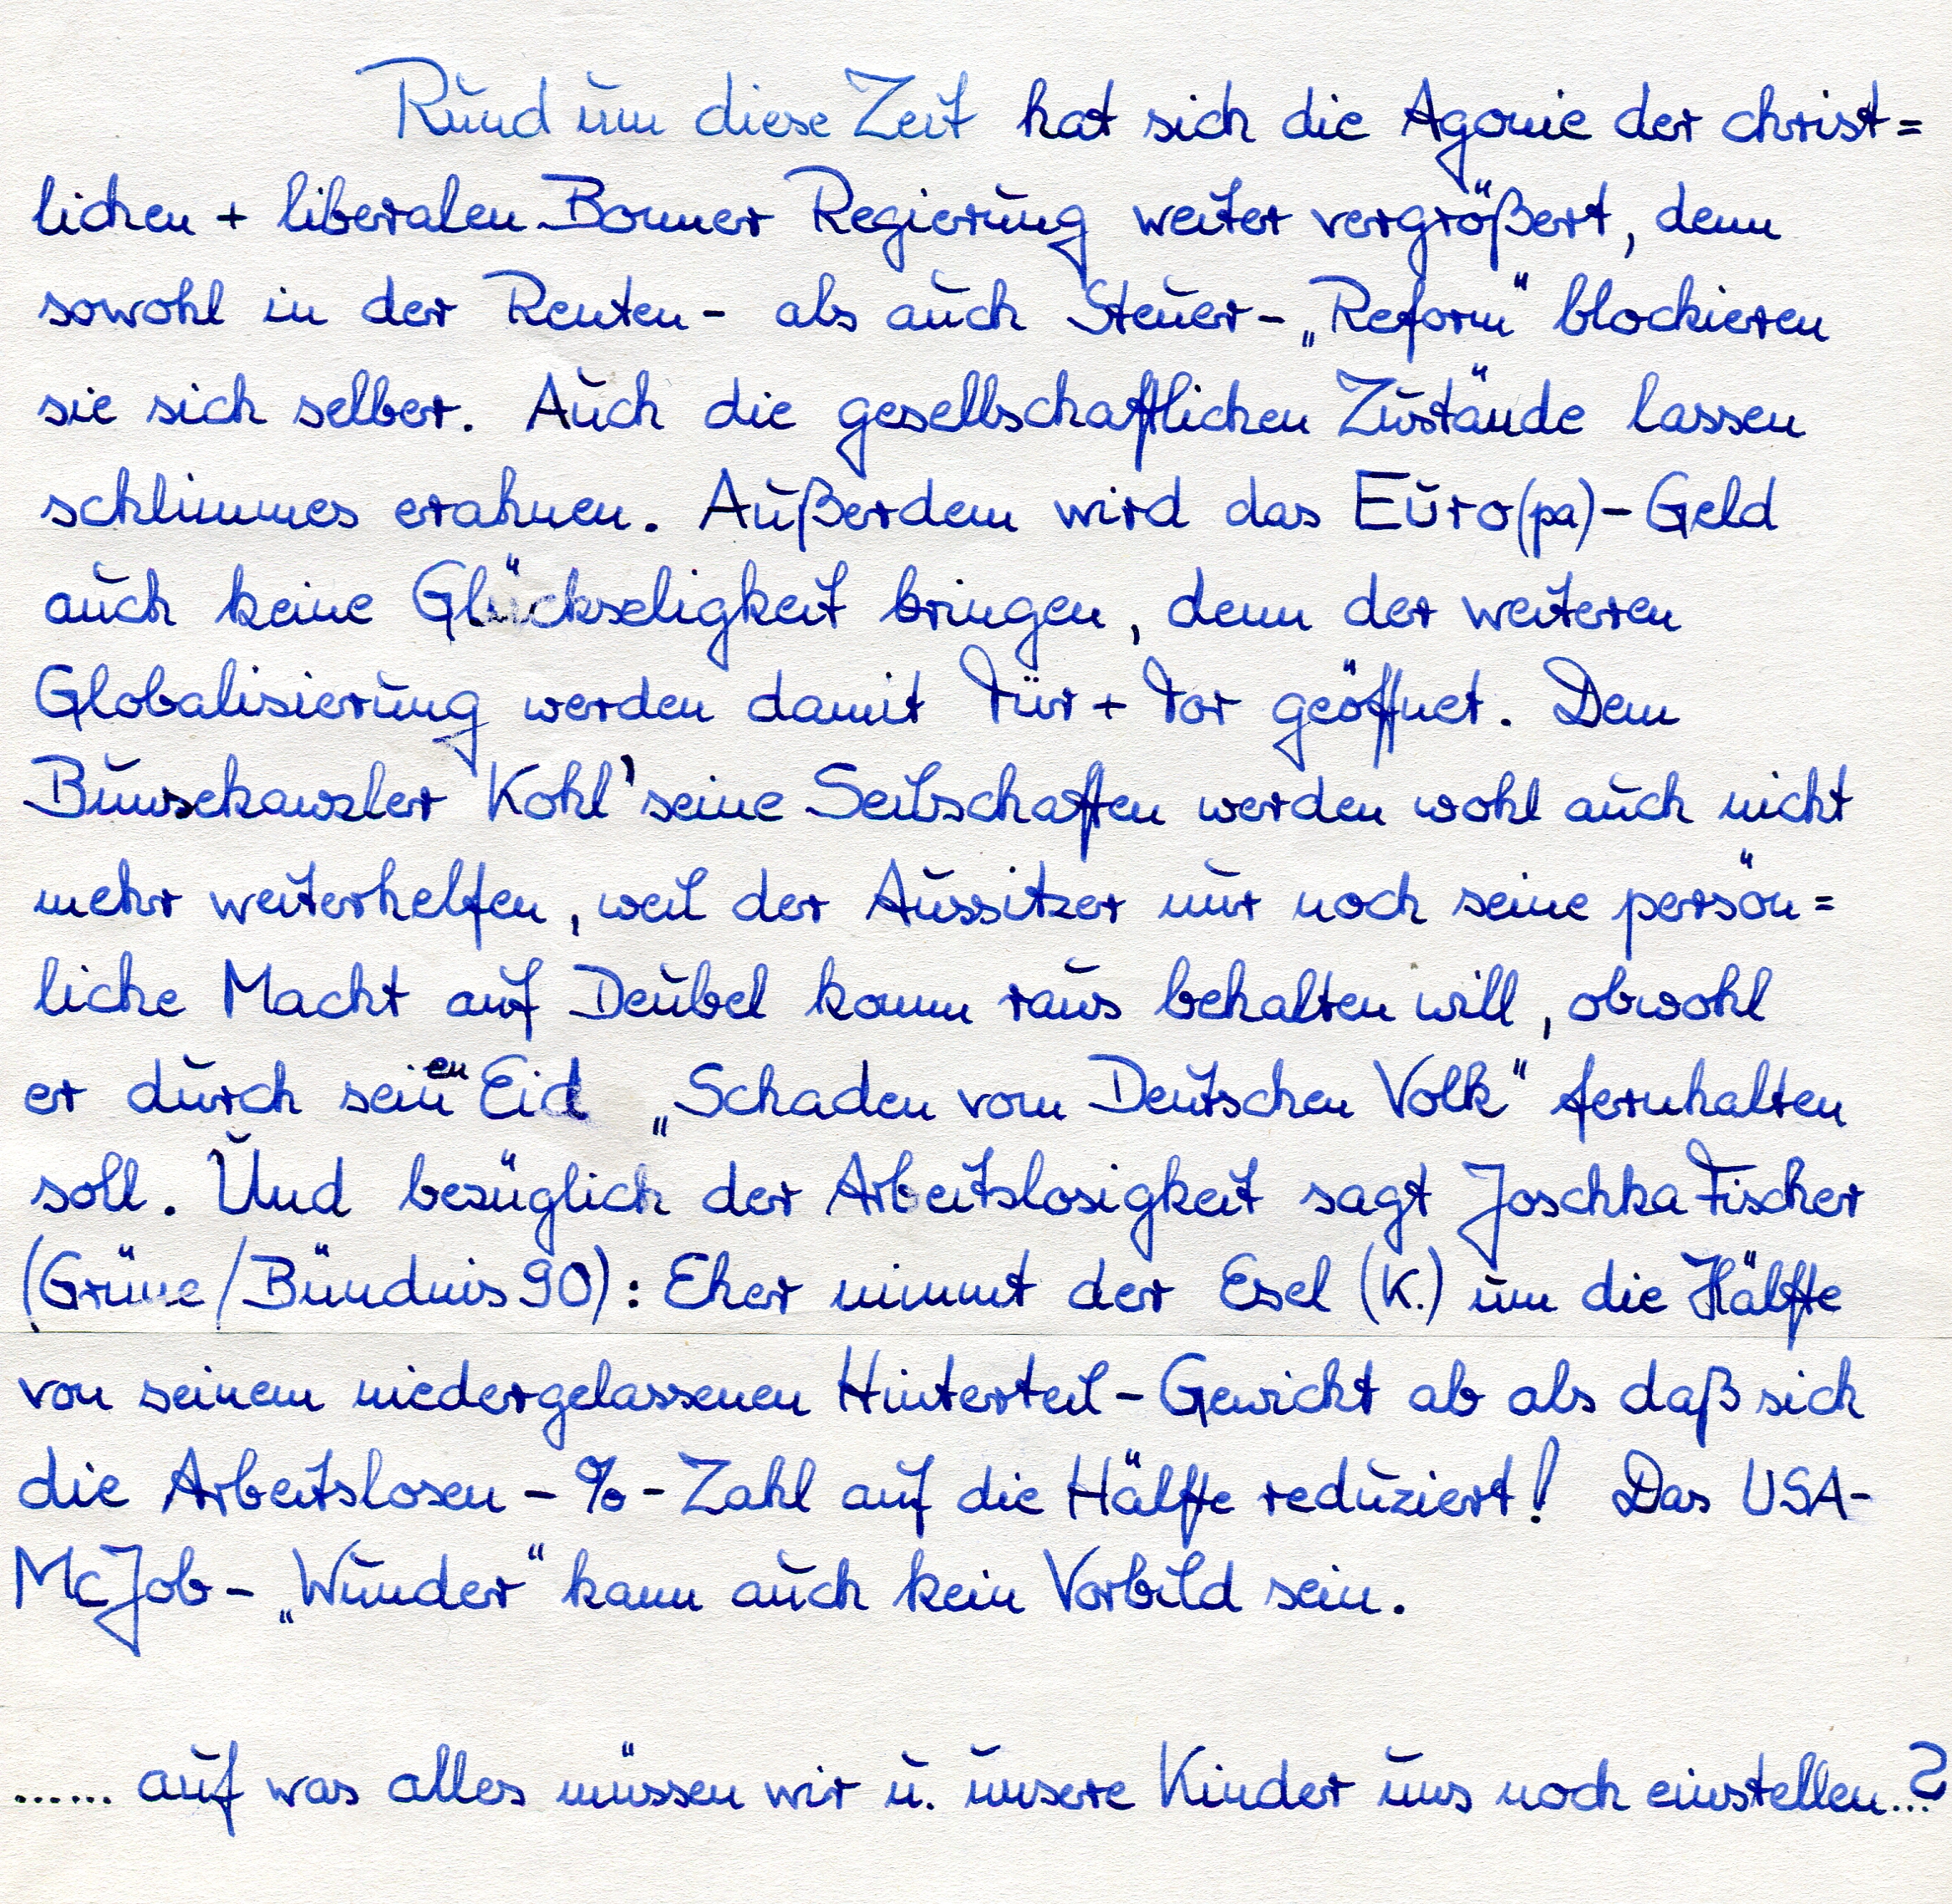 Rund um diese Zeit hat sich die Agonie der christ=
lichen + liberalen Bonner Regierung weiter vergrößert, denn
sowohl in der Renten- als auch Steuer-„Reform“ blockieren
sie sich selber. Auch die gesellschaftlichen Zustände lassen
schlimmes erahnen. Außerdem wird das Euro(pa)-Geld
auch keine Glückseligkeit bringen, denn der weiteren
Globalisierung werden damit Tür + Tor geöffnet. Dem
Bunsekanzler Kohl' seine Seilschaften werden wohl auch nicht
mehr weiterhelfen, weil der Aussitzer nur noch seine persön=
liche Macht auf Deubel komm raus behalten will, obwohl
er durch seinen Eid „Schaden vom Deutschen Volk“ fernhalten
soll. Und bezüglich der Arbeitslosigkeit sagt Joschka Fischer
(Grüne/Bündnis 90): Eher nimmt der Esel (K.) um die Hälfte
von seinem niedergelassenen Hinterteil-Gewicht ab als daß sich
die Arbeitslosen-%-Zahl auf die Hälfte reduziert! Das USA-
McJob-„Wunder“ kann auch kein Vorbild sein.
...... auf was alles müssen wir u. unsere Kinder uns noch einstellen...?